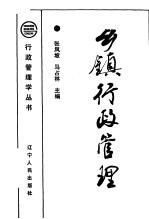 乡镇行政管理
张凤坡 马占林 主编
行政管理学丛书
辽宁人民出版社